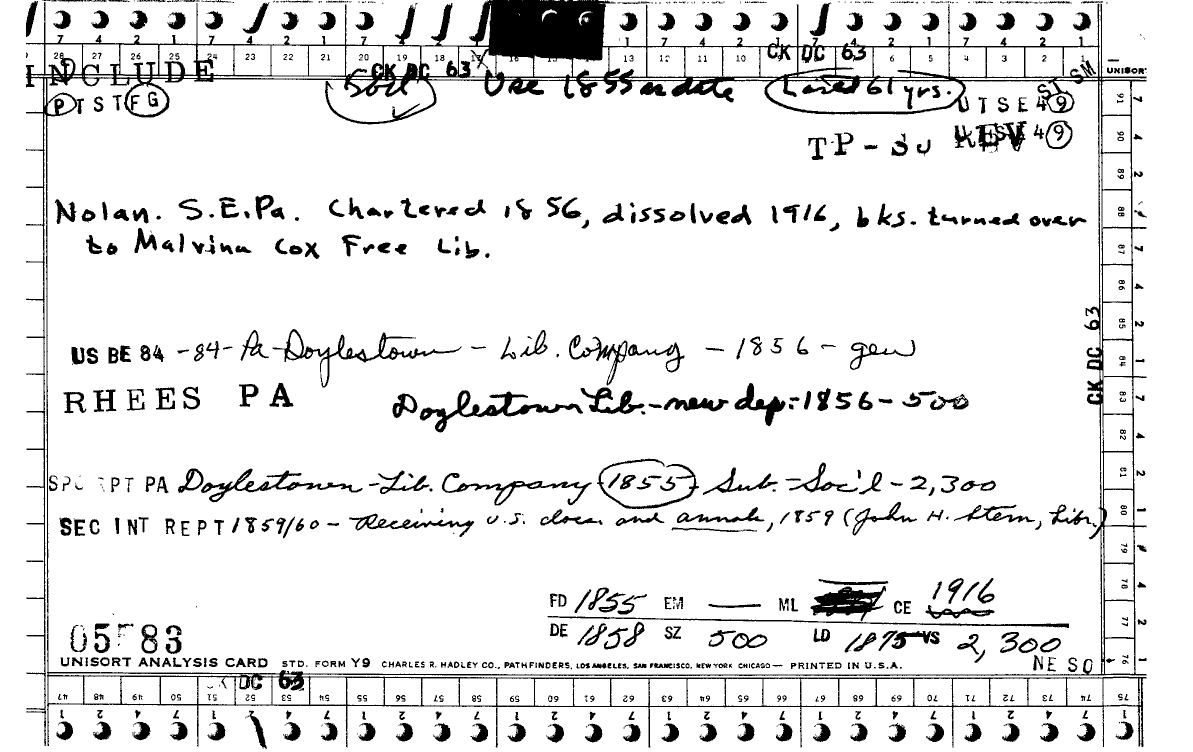 7 4 2 1 7 4 2 1 7 4 2 1 7 1 7 4 2 1 7 4 2 1
28 27 26 25 24 23 22 21 20 19 18 17 13 12 11 10 9 8 7 6 5 4 3 2 1
CK DC 63 CK DC 63
INCLUDE Use 1855 as date Lasted 61 yrs. ST SM UNISORT
P T S T F G U T S E 4 9
TP - SU REV 4 9
Nolan. S.E.Pa. Chartered 1856, dissolved 1916, bks. turned over
to Malvina Cox Free Lib.
US BE 84 -84- Pa-Doylestown - Lib. Company - 1856 - gen
RHEES PA Doylestown Lib.-new dep:-1856-500
SPC RPT PA Doylestown-Lib. Company-1855- Sub.-Soc'l-2,300
SEC INT REPT 1859/60 - Receiving U.S. docs. and annals, 1859 (John H. Stem, Libr.)
CK DC 63
FD 1855 EM — ML CE 1916
DE 1858 SZ 500 LD 1875 VS 2,300
05583 NE SO
UNISORT ANALYSIS CARD STD. FORM Y9 CHARLES R. HADLEY CO., PATHFINDERS, LOS ANGELES, SAN FRANCISCO, NEW YORK CHICAGO — PRINTED IN U.S.A.
CK DC 63
47 48 49 50 51 52 53 54 55 56 57 58 59 60 61 62 63 64 65 66 67 68 69 70 71 72 73 74 75
91 90 89 88 87 86 85 84 83 82 81 80 79 78 77 76